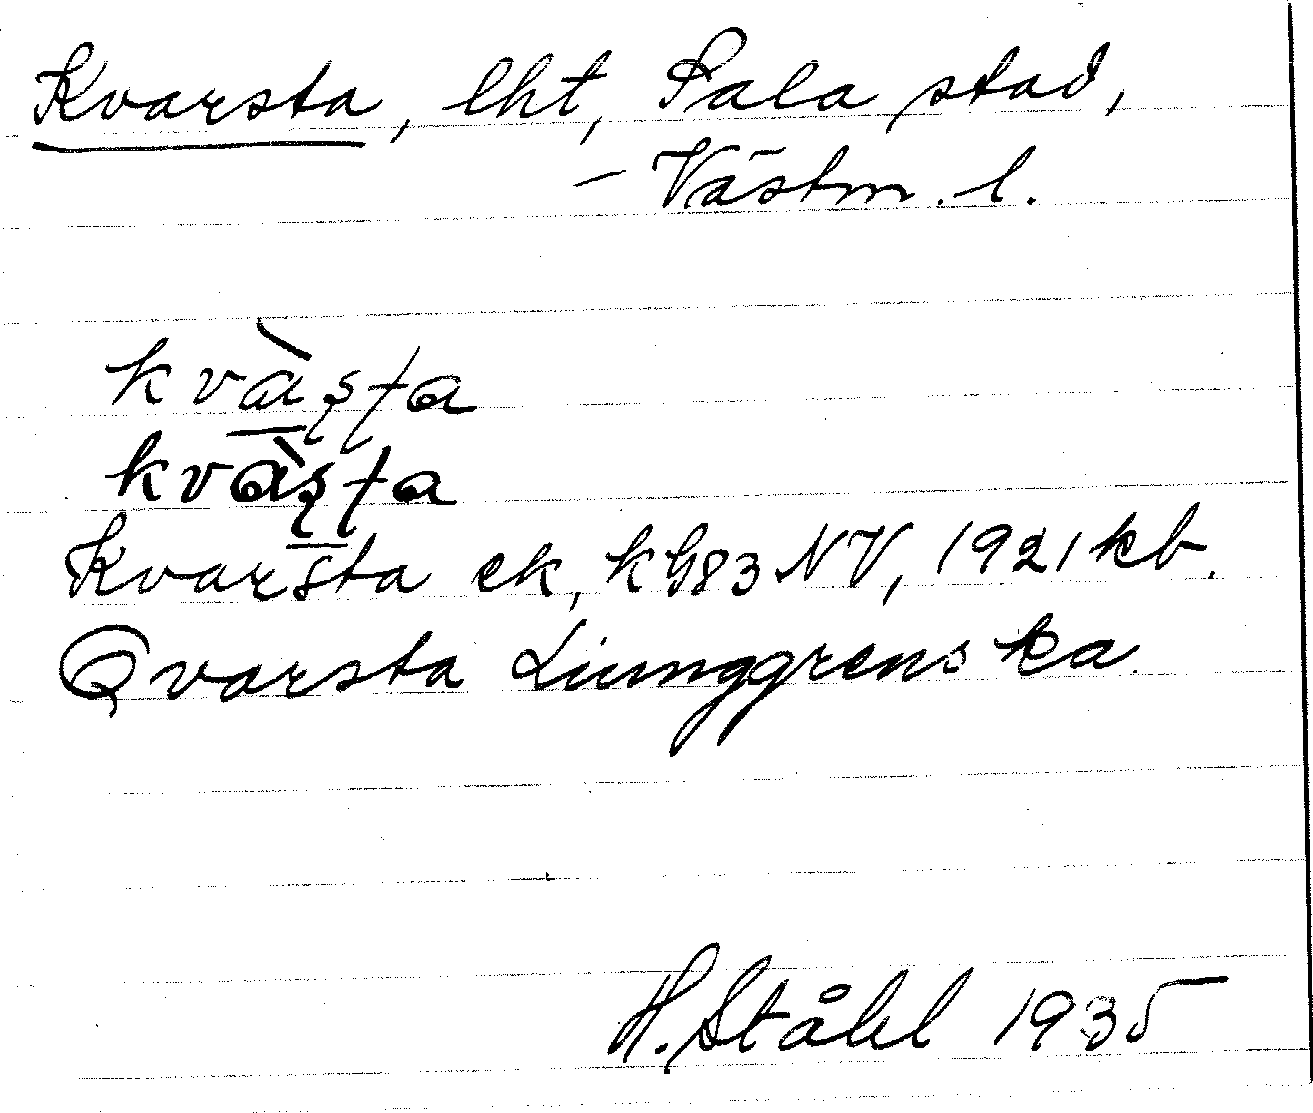 Kvarsta, lht, Sala stad,
– Västm. l.
kvàʂʈa
kvàʂʈa
Kvarsta ek, kG83NV, 1921 kb.
Qvarsta Ljunggrenska
H. Ståhl 1935